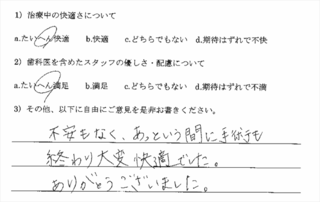 1）治療中の快適さについて
a.たいへん快適　b.快適　c.どちらでもない　d.期待はずれで不快
2）歯科医を含めたスタッフの優しさ・配慮について
a.たいへん満足　b.満足　c.どちらでもない　d.期待はずれで不満
3）その他、以下に自由にご意見を是非お書きください。
不安もなく、あっという間に手術も
終わり大変快適でした。
ありがとうございました。